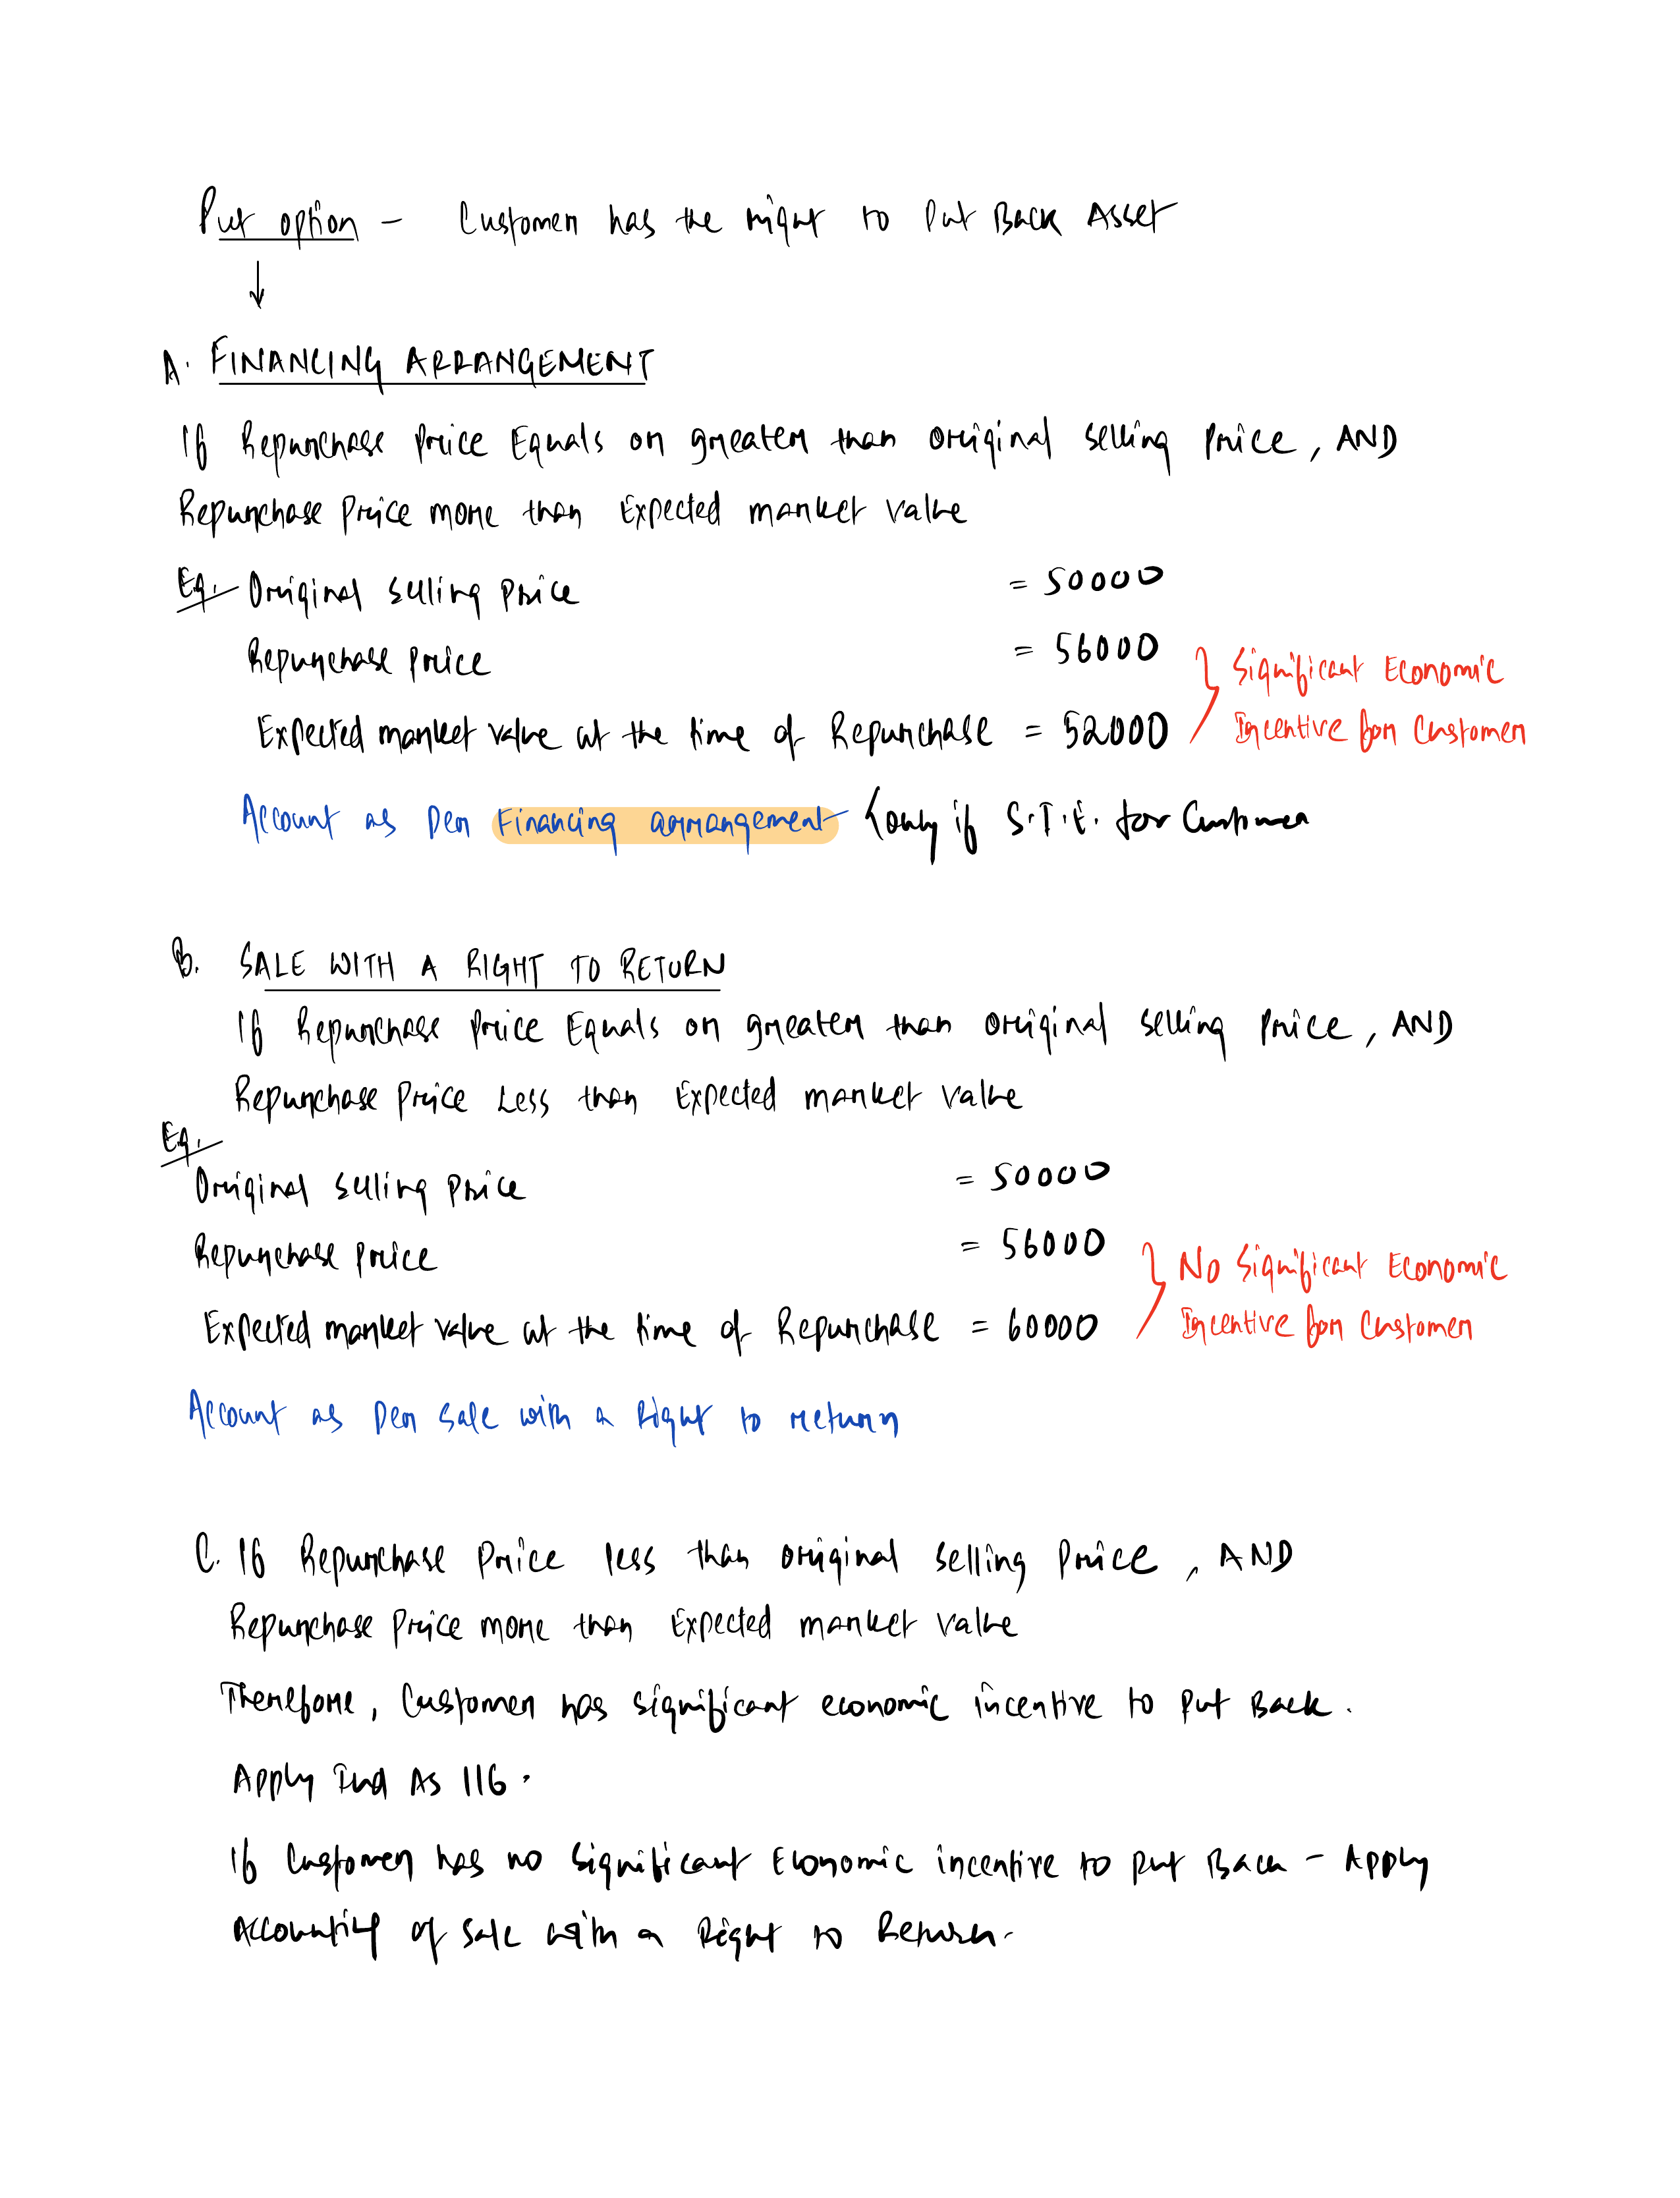 Put option - Customer has the right to Put Back Asset
↓
A. FINANCING ARRANGEMENT
If Repurchase Price Equals or greater than original selling Price, AND
Repurchase Price more than Expected market value
Eg. Original selling Price = 50000
Repurchase Price = 56000
Expected market value at the time of Repurchase = 52000
} Significant Economic
Incentive for Customer
Account as per Financing arrangement {only if S.I.E. for Customer
B. SALE WITH A RIGHT TO RETURN
If Repurchase Price Equals or greater than original selling Price, AND
Repurchase Price Less than Expected market value
Eg.
Original selling Price = 50000
Repurchase Price = 56000
Expected market value at the time of Repurchase = 60000
} No Significant Economic
Incentive for Customer
Account as per sale with a Right to return
C. If Repurchase Price less than original selling Price, AND
Repurchase Price more than Expected market value
Therefore, Customer has significant economic incentive to Put Back.
Apply Ind AS 116.
If Customer has no Significant Economic incentive to put Back - Apply
Accounting of Sale with a Right to Return.